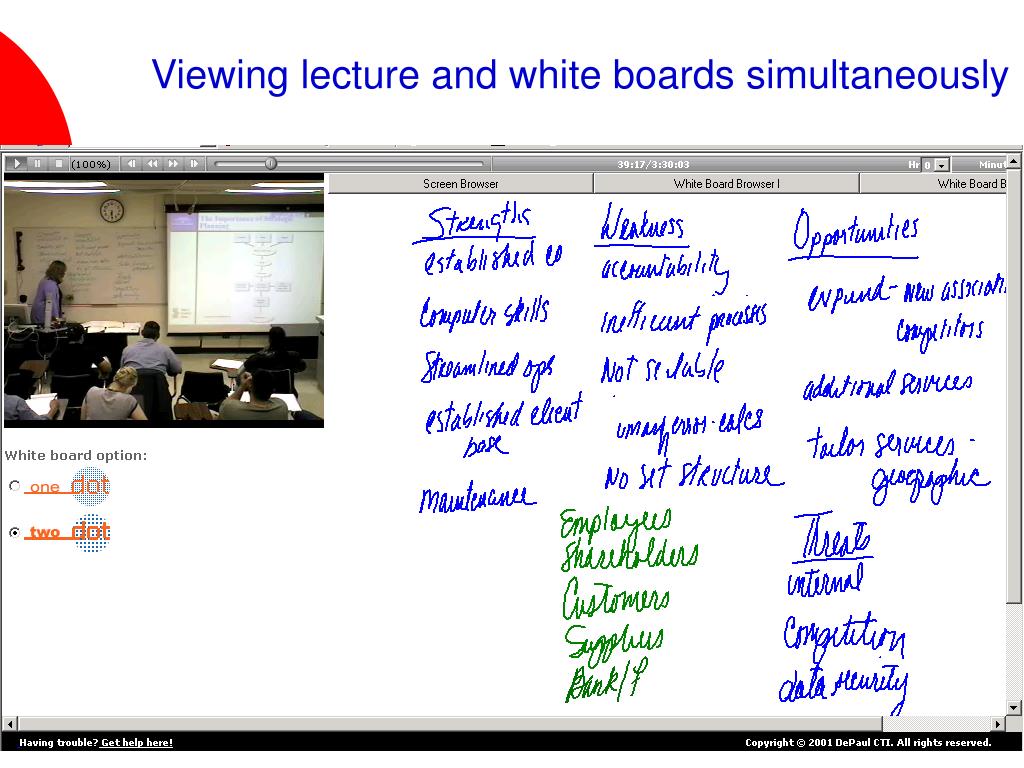 Viewing lecture and white boards simultaneously
(100%)
39:17/3:30:03
Hr 0
Minut
Screen Browser
White Board Browser I
White Board B
The Importance of Strategic
Planning
White board option:
one dot
two dot
Strengths
established co
Computer skills
Streamlined ops
established client
base
Maintenance
Weakness
accountability
inefficient processes
Not
many error-calcs
No set structure
Employees
Shareholders
Customers
Suppliers
Bank/
Opportunities
expand - New associati
Competitors
additional services
tailor services -
geographic
Threats
internal
Competition
data security
Having trouble? Get help here!
Copyright © 2001 DePaul CTI. All rights reserved.